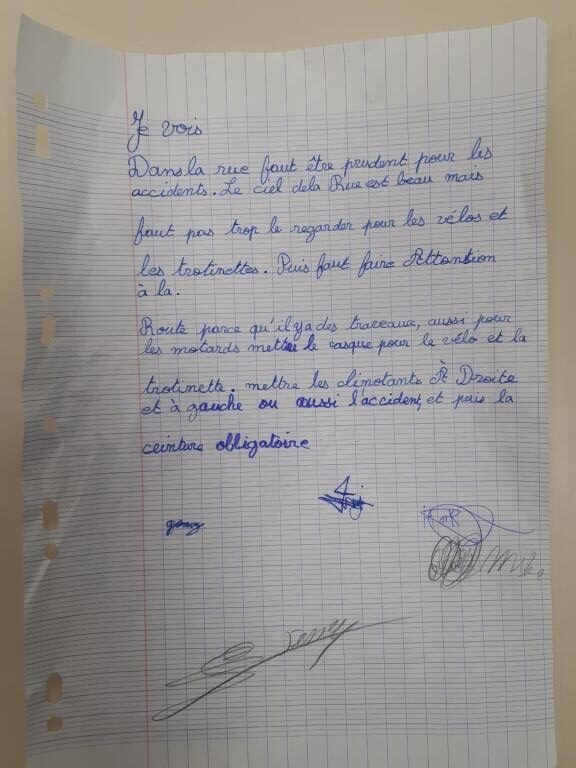 Je vois
Dans la rue faut être prudent pour les
accidents. Le ciel dela Rue est beau mais
faut pas trop le regarder pour les vélos et
les trotinettes. Puis faut faire Attontion
à la.
Route parce qu'il ya des traveaux, aussi pour
les motards mettre le casque pour le vélo et la
trotinette. mettre les clinotants À Droite
et à gauche ou aussi l'accident, et puis la
ceinture obligatoire